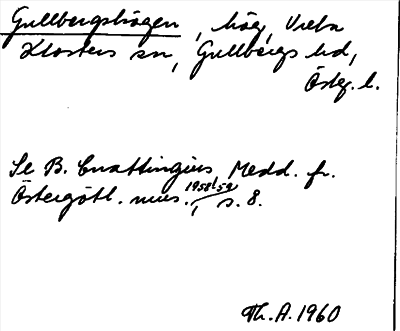 Gullbergshögen, hög, Vreta
Klosters sn, Gullbergs hd,
Österg. l.
Se B. Cnattingius, Medd. fr.
Östergötl. mus. 1958/59, s. 8.
Th. A. 1960